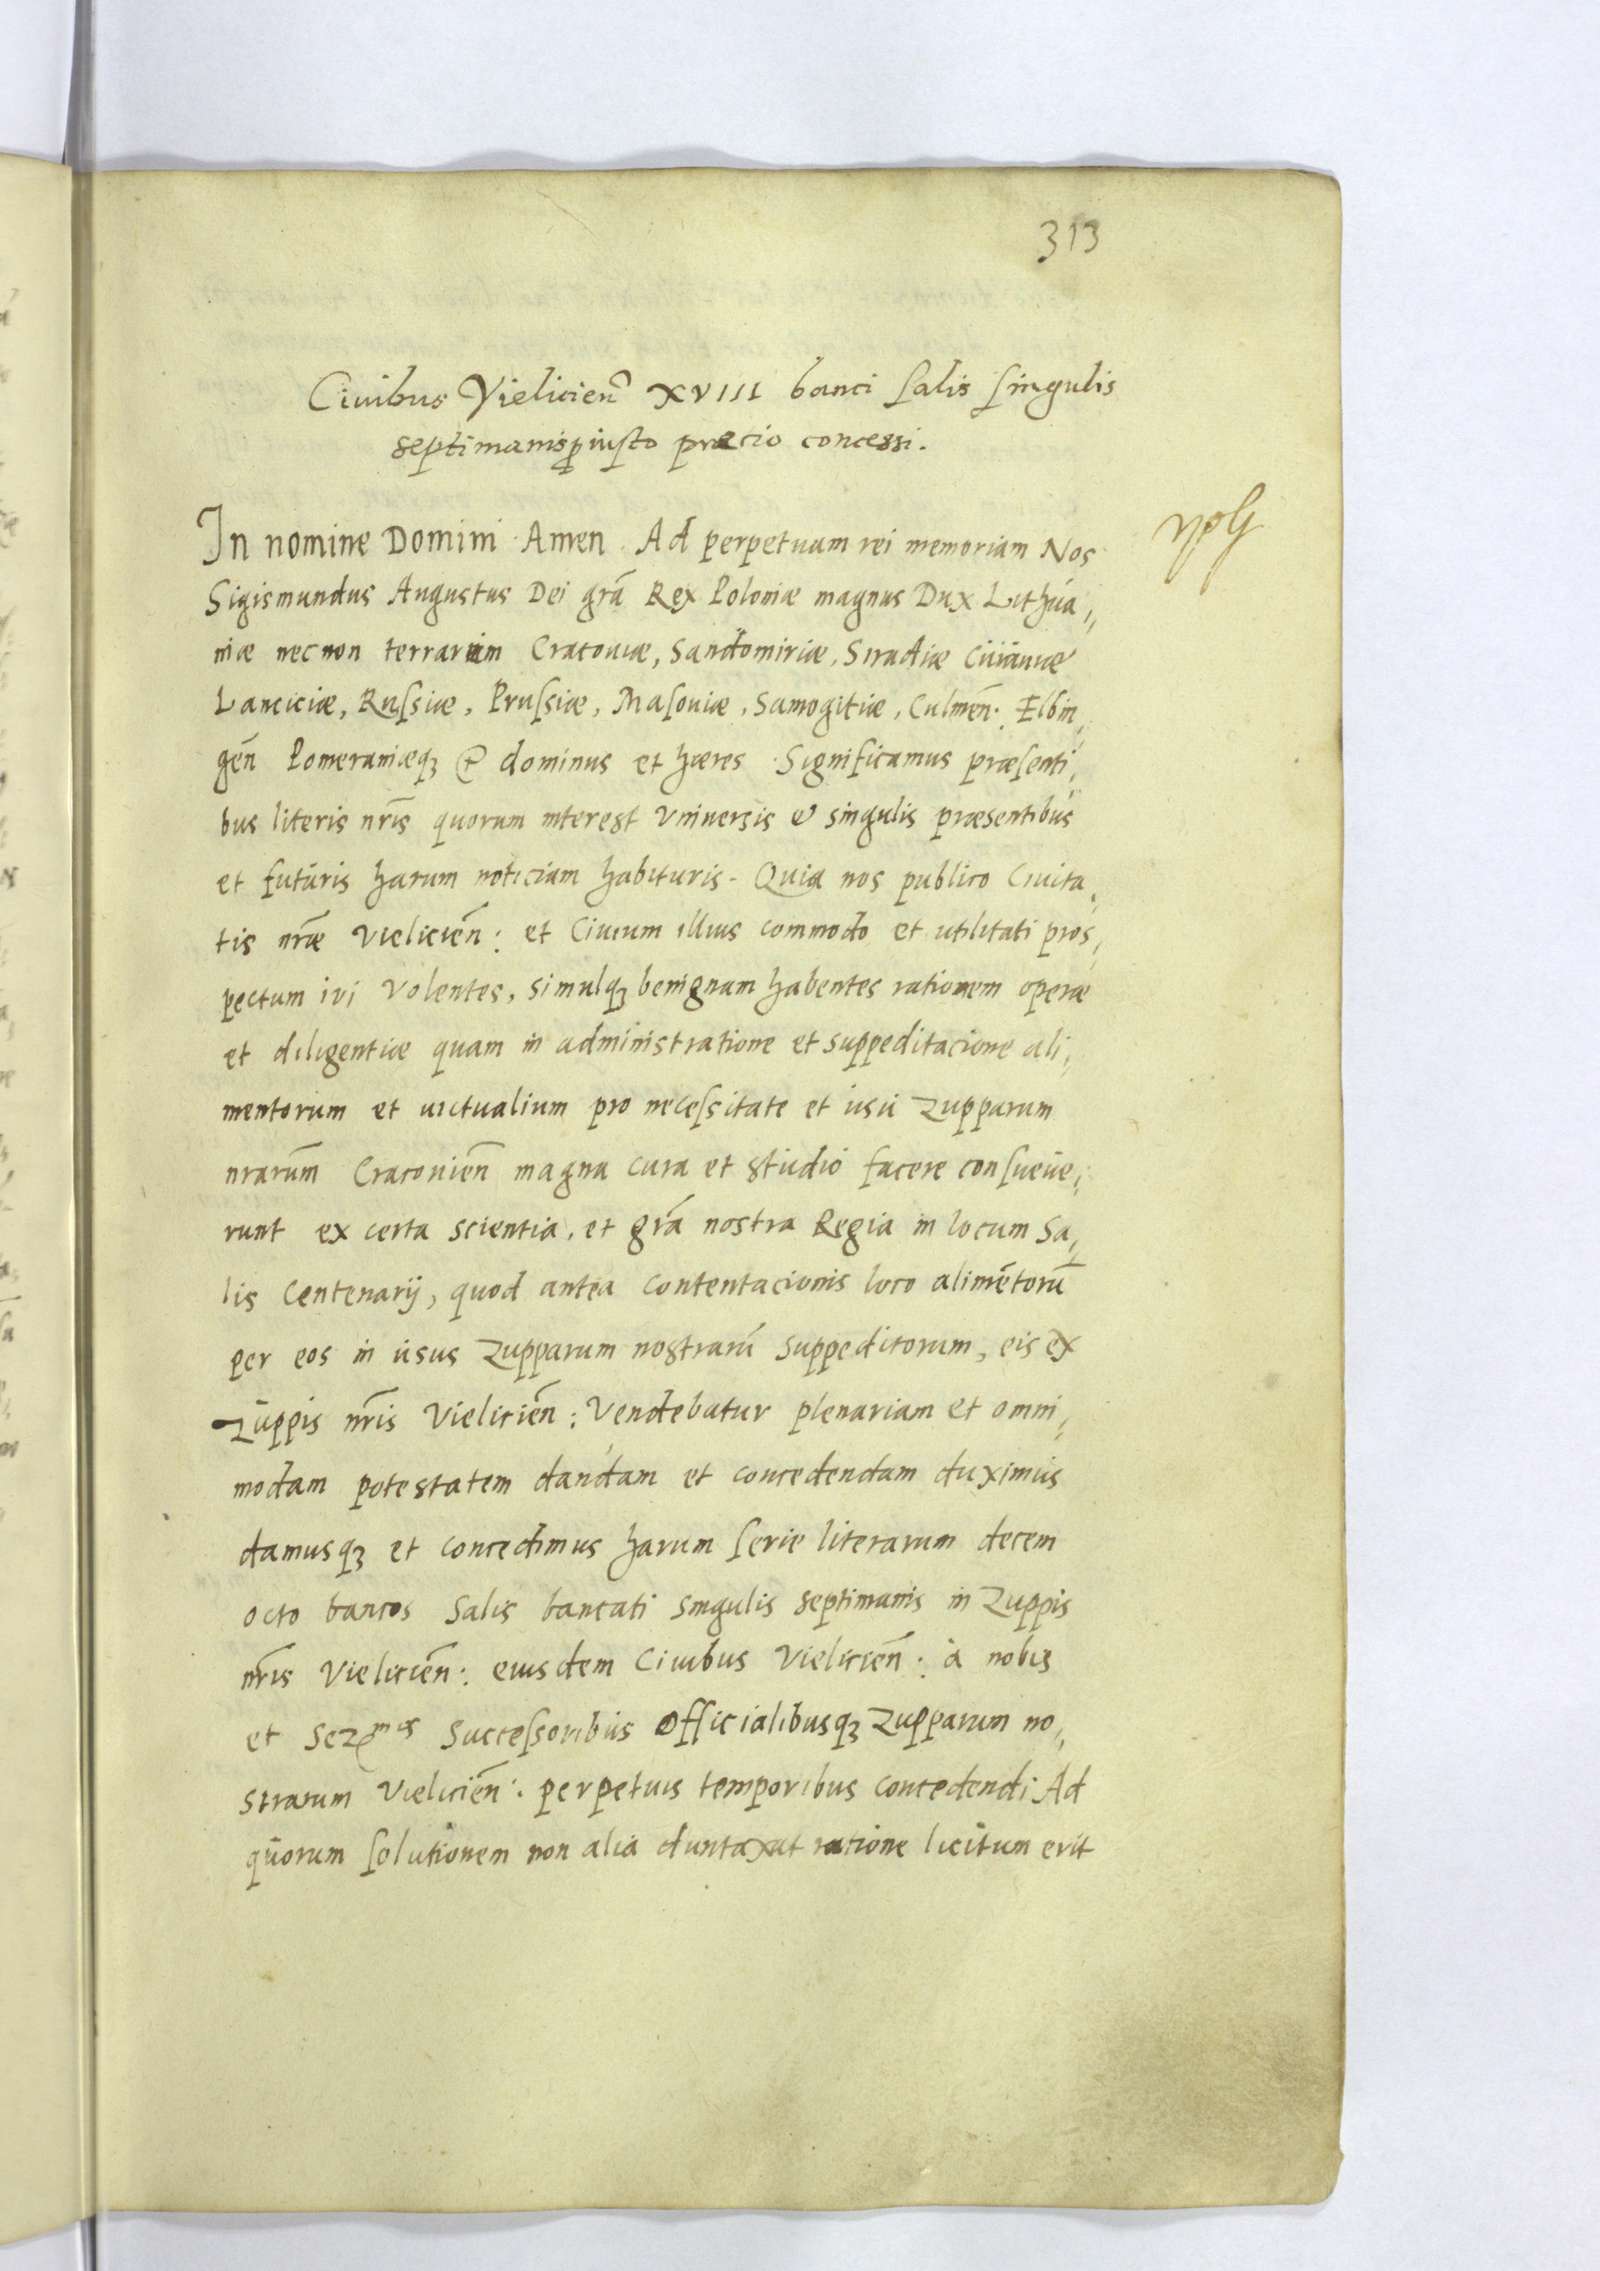 313
Ciuibus Vielicien̄ XVIII banci ſalis ſingulis
septimanis p̱ iuſto prætio concessi.
In nomine Domini Amen. Ad perpetuam rei memoriam Nos
Sigismundus Augustus Dei grā Rex Poloniæ magnus Dux Lithua,,
niæ necnon terrarum Cracouiæ, Sandomiriæ, Siradiæ Cuiauiæ
Lanciciæ, Ruſsiæ, Pruſsiæ, Maſouiæ, Samogitiæ, Culmēn: Elbin,,
gēn Pomeraniæqꝫ &c dominus et hæres. Significamus præſenti,,
bus literis nrīs quorum interest vniuersis & singulis præsentibus
et futuris harum noticiam habituris. Quia nos publico Ciuita,,
tis nrāe Vieliciēn: et Ciuium illius commodo et utilitati pros,,
pectum iri Volentes, simulqꝫ benignam habentes rationem operæ
et diligentiæ quam in administratione et suppeditacione ali,,
mentorum et uictualium pro neceſsitate et usu Zupparum
nrarūm Cracouiēn magna cura et studio facere conſueue,,
runt ex certa scientia, et grā nostra Regia in locum Sa,,
lis Centenarij, quod antea contentacionis loco alimētorū
per eos in usus Zupparum nostrarū suppeditorum, eis ex
Zuppis nrīs Vieliciēn: Vendebatur plenariam et omni,,
modam potestatem dandam et concedendam duximus
damusqꝫ et concedimus harum ſerie literarum decem
octo bancos Salis bancati singulis septimanis in Zuppis
nrīs Vieliciēn: eiusdem Ciuibus Vieliciēn: à nobis
et Succeſsoribus Officialibusqꝫ Zupparum no,,
strarum Vieliciēn: perpetuis temporibus concedendi Ad
quorum ſolutionem non alia duntaxat ratione licitum erit